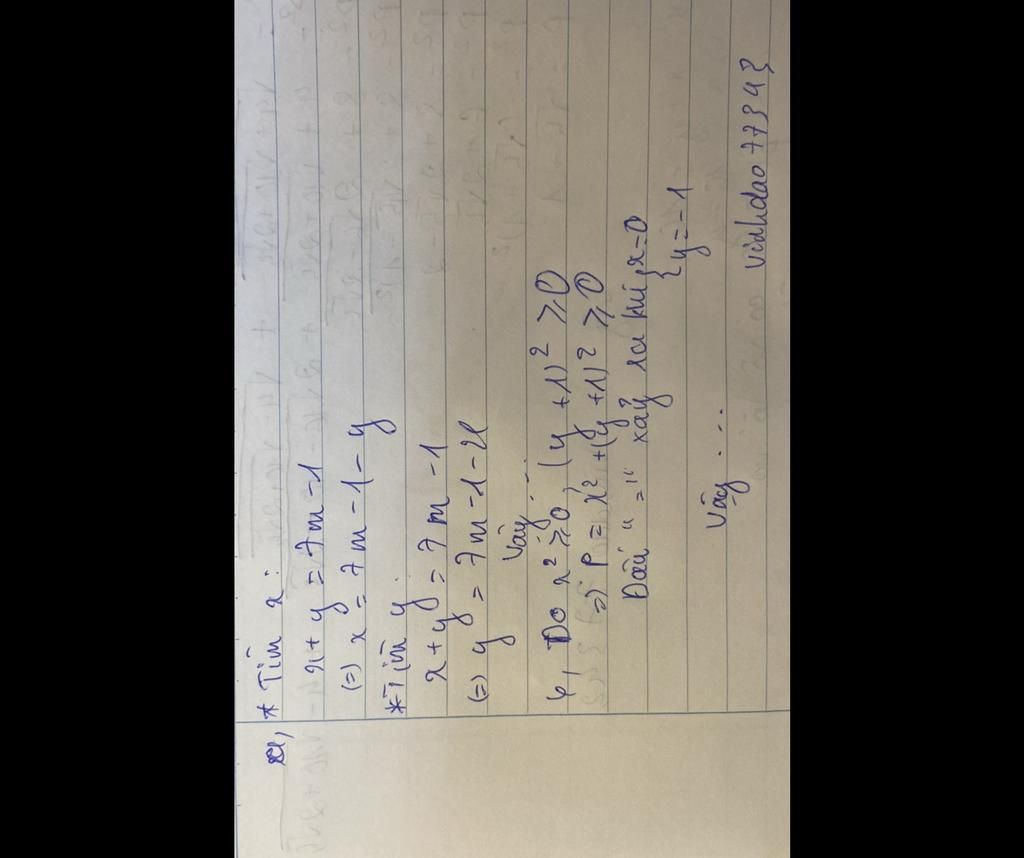 a, * Tìm x:
x + y = 7m - 1
(=) x = 7m - 1 - y
* Tìm y:
x + y = 7m - 1
(=) y = 7m - 1 - x
Vậy ...
b, Do x² ≥ 0, (y + 1)² ≥ 0
=) P = x² + (y + 1)² ≥ 0
Dấu "=" xảy ra khi { x = 0
{ y = - 1
Vậy ...
vinhdao7734}